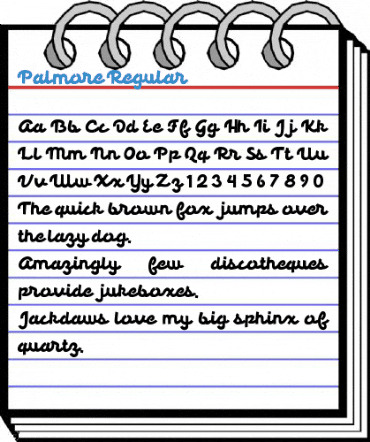 Palmore Regular
Aa Bb Cc Dd Ee Ff Gg Hh Ii Jj Kk
Ll Mm Nn Oo Pp Qq Rr Ss Tt Uu
Vv Ww Xx Yy Zz 1 2 3 4 5 6 7 8 9 0
The quick brown fox jumps over
the lazy dog.
Amazingly few discotheques
provide jukeboxes.
Jackdaws love my big sphinx of
quartz.